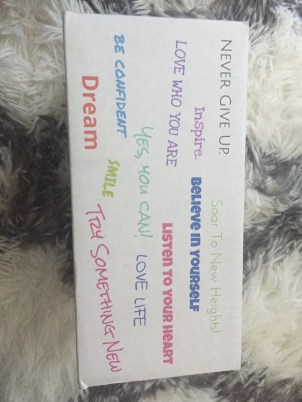 NEVER GIVE UP.
Soar To New Heights!
Inspire.
BELIEVE IN YOURSELF
LOVE WHO YOU ARE
LISTEN TO YOUR HEART
YES, YOU CAN!
LOVE LIFE
BE CONFIDENT
SMILE
TRY SOMETHING NEW
Dream